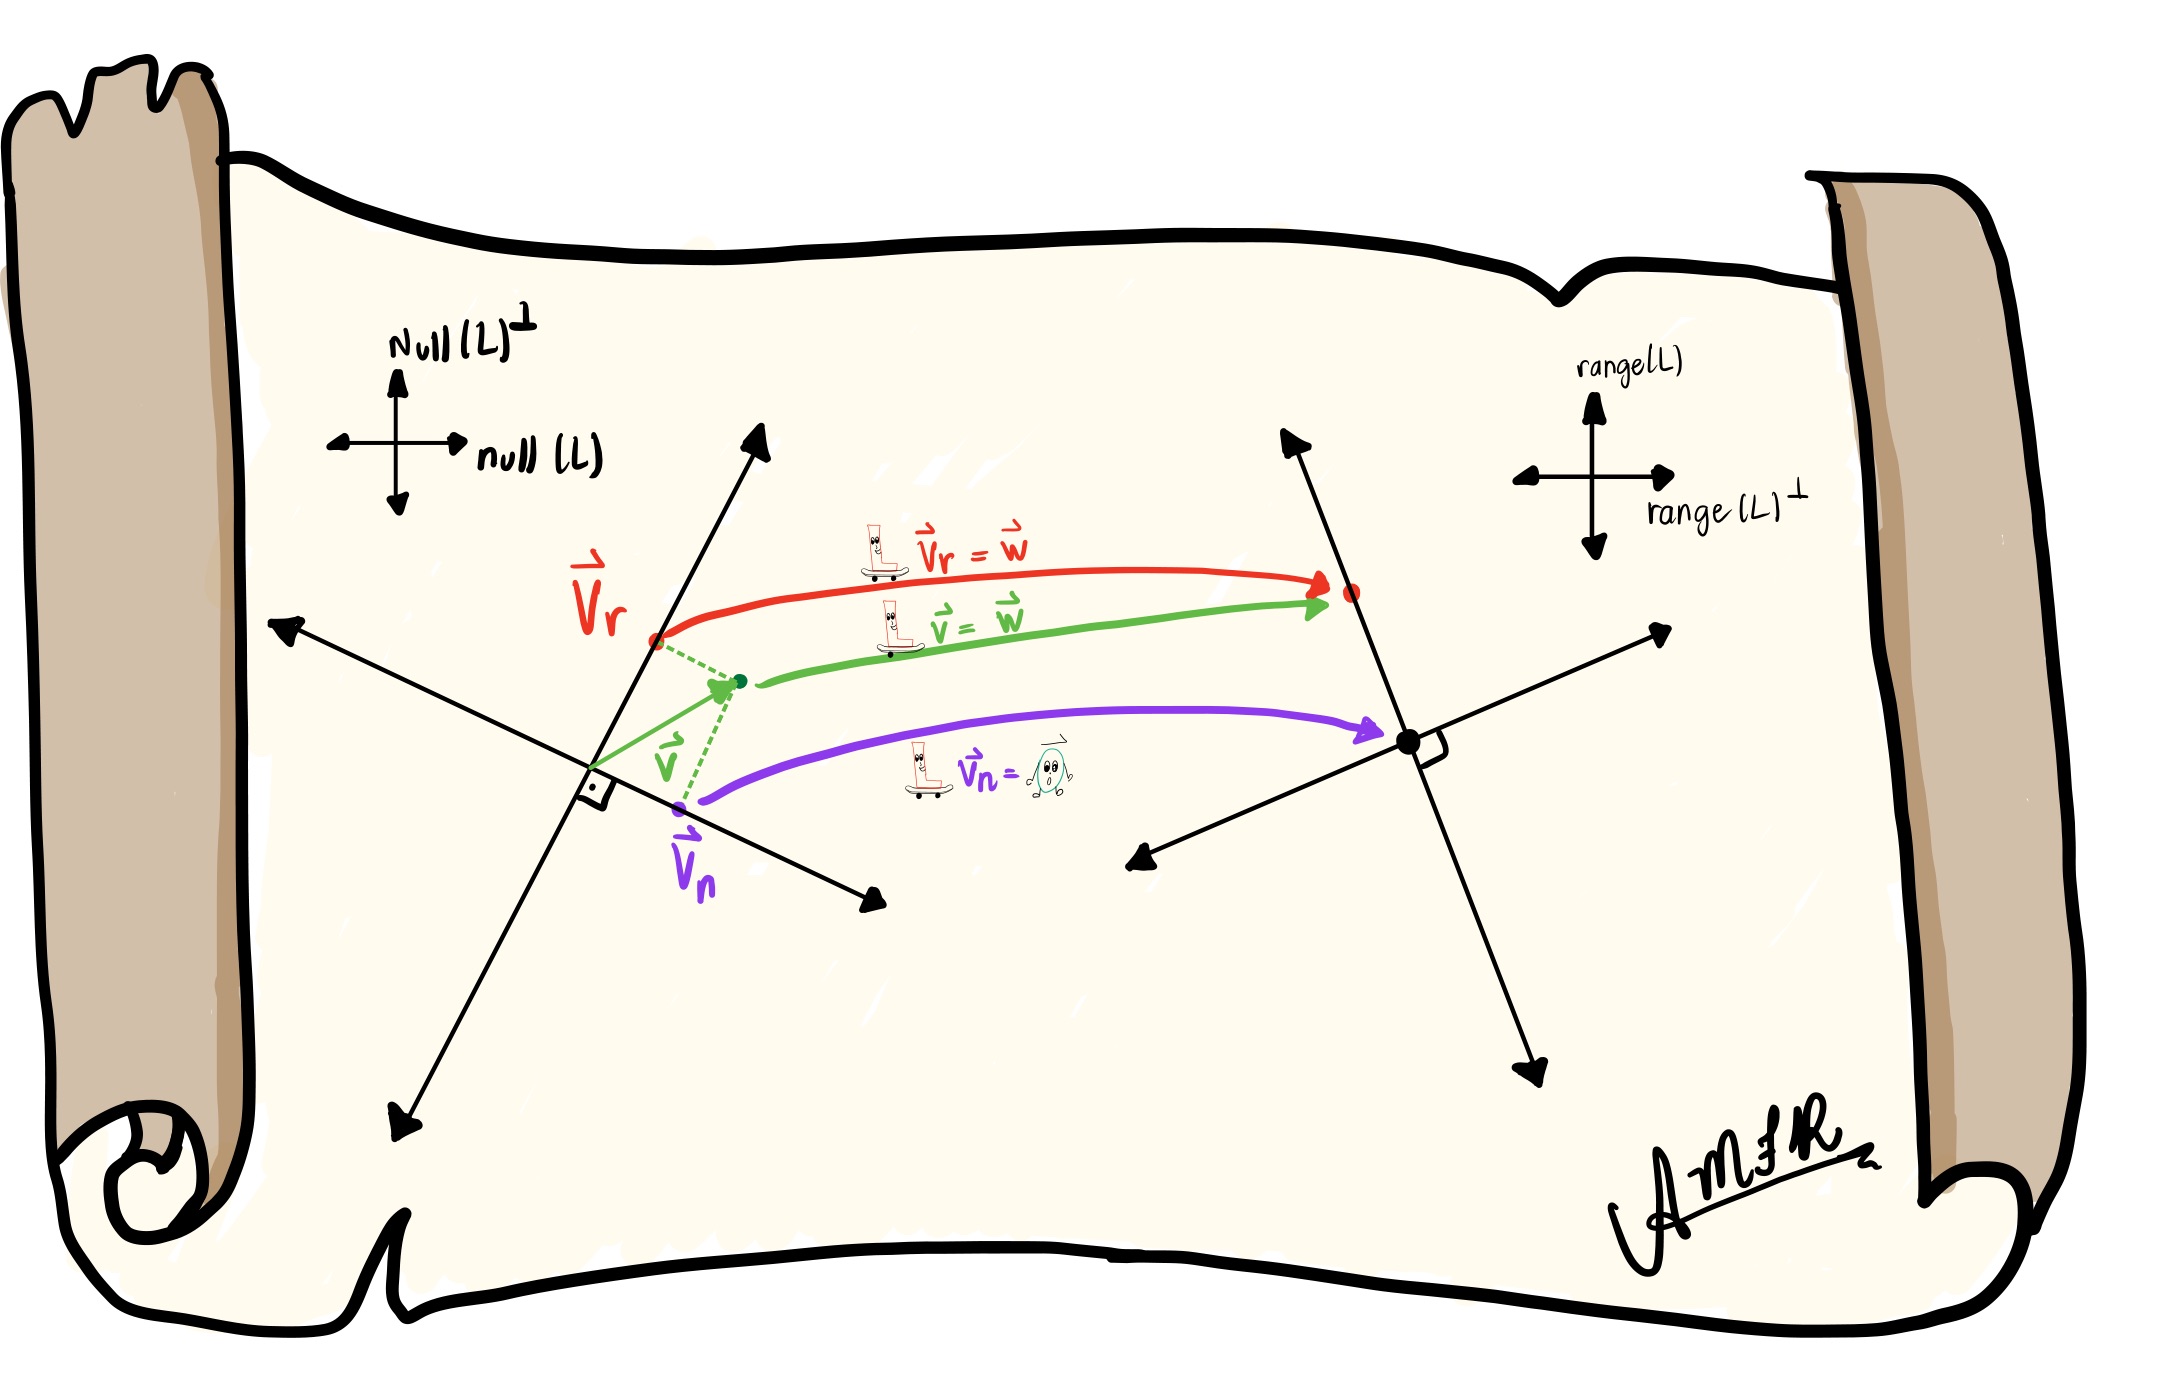 Null(L)^⊥
null(L)
range(L)
range(L)^⊥
L v⃗r = w⃗
L v⃗ = w⃗
v⃗r
v⃗
L v⃗n = 0⃗
v⃗n
AMIR